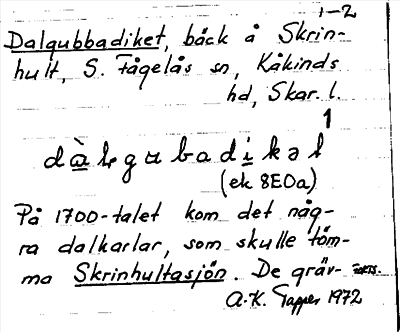 1-2
Dalgubbadiket, bäck å Skrin-
hult, S. Fågelås sn, Kåkinds
hd, Skar. l.
1
dàlgubadikəl
(ek 8E0a)
På 1700-talet kom det någ-
ra dalkarlar, som skulle töm-
ma Skrinhultasjön. De gräv-
A.K. Tapper 1972